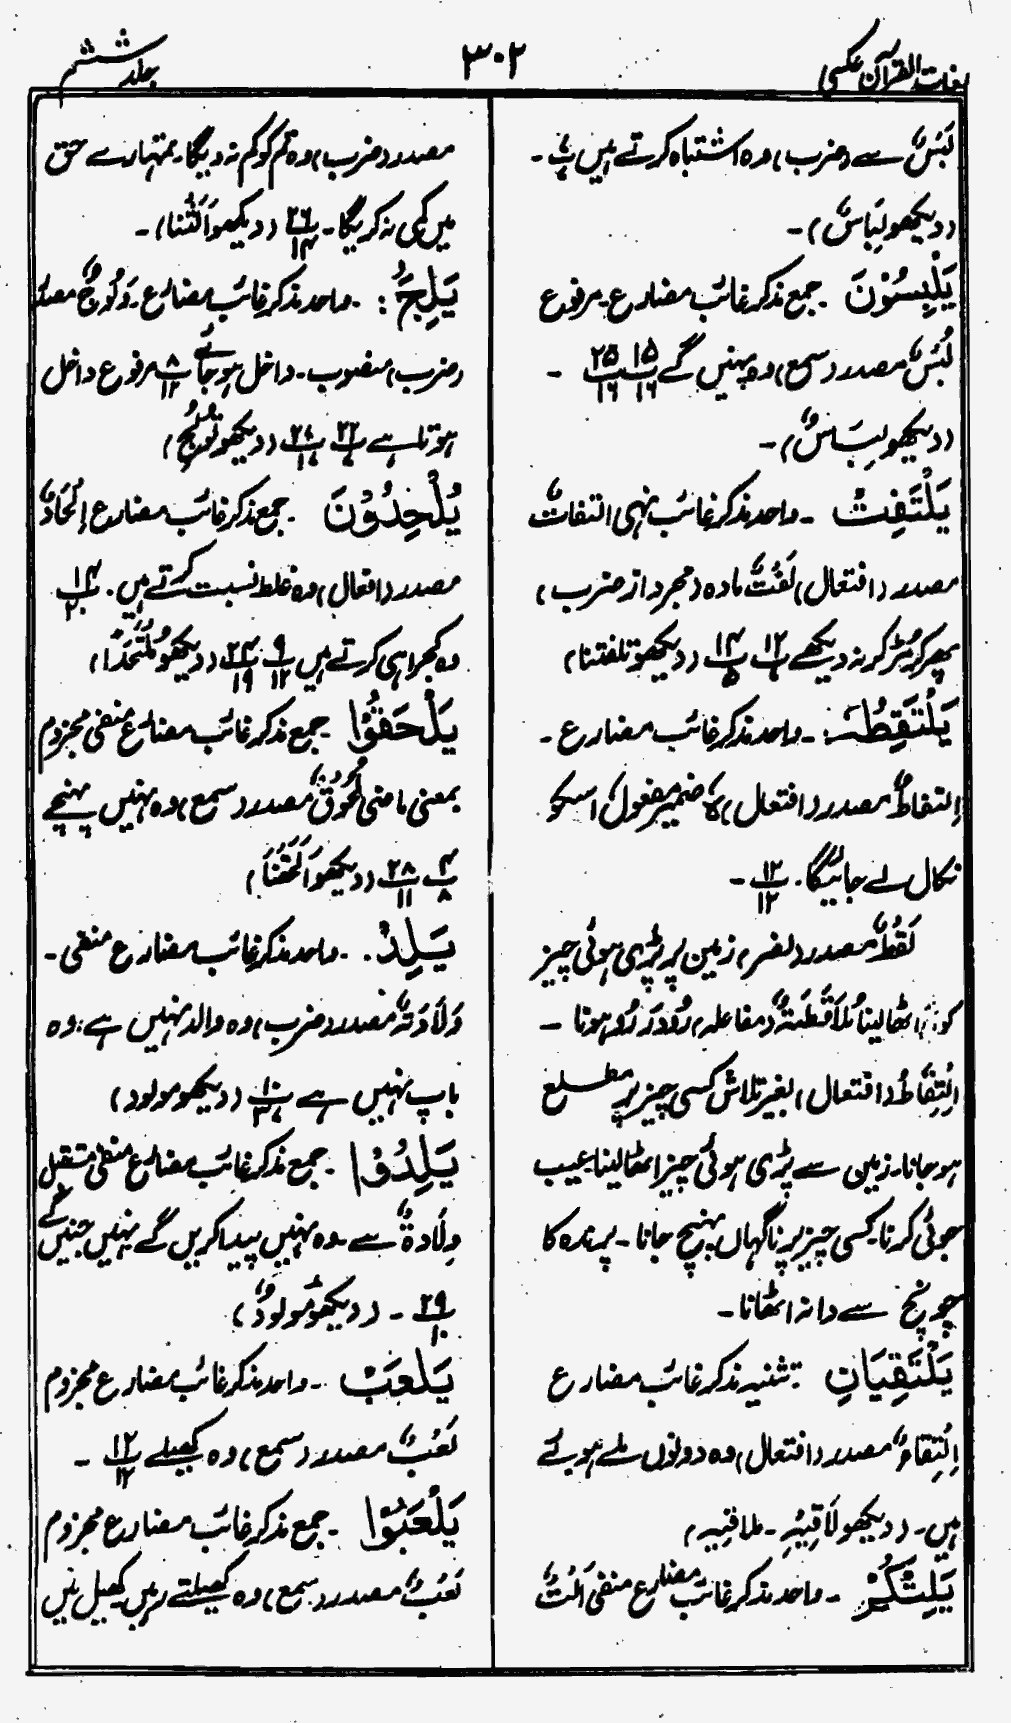 لغات القرآن عکسی
۳۰۲
جلد ششم
لَبْسٌ سے (ضرب) وہ اشتباہ کرتے ہیں پ ۷ -
(دیکھو لِبَاسٌ) -
یَلْبِسُوْنَ - جمع مذکر غائب مضارع - مرفوع
لُبْسٌ مصدر (سمع) وہ پہنیں گے پ ۱۵ ۱۶ پ ۲۵ ۱۶ -
(دیکھو لِبَاسٌ) -
یَلْتَفِتْ - واحد مذکر غائب نہی التفاتٌ
مصدر (افتعال) لَفْتٌ مادہ (مجرد از ضرب)
پھر کر مُڑ کر نہ دیکھے پ ۱۲ ۷ پ ۱۴ ۵ (دیکھو تلفتنا)
یَلْتَقِطْہُ - واحد مذکر غائب مضارع -
اِلتقاطٌ مصدر (افتعال) ہٗ ضمیر مفعول اسکو
نکال لے جائیگا - پ ۱۲ ۱۲ -
لَقْطٌ مصدر (نصر) زمین پر پڑی ہوئی چیز
کو اٹھا لینا مُلَاقَطَۃٌ (مفاعلہ) رُو در رُو ہونا -
اِلْتِقَاطٌ (افتعال) بغیر تلاش کسی چیز پر مطلع
ہو جانا - زمین سے پڑی ہوئی چیز اٹھا لینا عیب
جوئی کرنا کسی چیز پر ناگہاں پہنچ جانا - پرندہ کا
چونچ سے دانہ اٹھانا -
یَلْتَقِیَانِ : تثنیہ مذکر غائب مضارع
اِلْتِقَاءٌ مصدر (افتعال) وہ دونوں ملے ہوئے
ہیں - (دیکھو لَاقِیْہِ - ملاقیہ)
یَلِتْکُمْ - واحد مذکر غائب مضارع منفی اَلْتٌ
مصدر (ضرب) وہ تم کو کم نہ دیگا - تمہارے حق
میں کمی نہ کریگا - پ ۲۶ ۱۴ (دیکھو اَلَتْنا) -
یَلِجَ : - واحد مذکر غائب مضارع - وُلُوجٌ مصدر
(ضرب) منصوب - داخل ہو جائے پ ۸ ۱۲ مرفوع داخل
ہوتا ہے پ ۲۲ ۷ پ ۲۷ ۱۷ (دیکھو تُوْلِجُ)
یُلْحِدُوْنَ - جمع مذکر غائب مضارع اِلْحَادٌ
مصدر (افعال) وہ غلط نسبت کرتے ہیں - پ ۱۴ ۲۰
وہ کجراہی کرتے ہیں پ ۹ ۱۲ پ ۲۴ ۱۹ (دیکھو مُلْتَحَدًا)
یَلْحَقُوْا - جمع مذکر غائب مضارع منفی مجزوم
بمعنی ماضی لُحُوْقٌ مصدر (سمع) وہ نہیں پہنچے
پ ۴ ۸ پ ۲۸ ۱۱ (دیکھو اَلْحَقْنَا)
یَلِدْ - واحد مذکر غائب مضارع منفی -
وِلَادَۃٌ مصدر (ضرب) وہ والد نہیں ہے؛ وہ
باپ نہیں ہے پ ۳۷ (دیکھو مولود)
یَلِدُوْا - جمع مذکر غائب مضارع منفی مستقبل
وِلَادۃٌ سے - وہ نہیں پیدا کریں گے نہیں جنیں گے
پ ۲۹ ۱۰ - (دیکھو مولودٌ)
یَلعَبْ - واحد مذکر غائب مضارع مجزوم
لَعْبٌ مصدر (سمع) وہ کھیلے پ ۱۲ ۱۲ -
یَلْعَبُوْا - جمع مذکر غائب مضارع مجزوم
لَعْبٌ مصدر (سمع) وہ کھیلتے رہیں کھیل میں